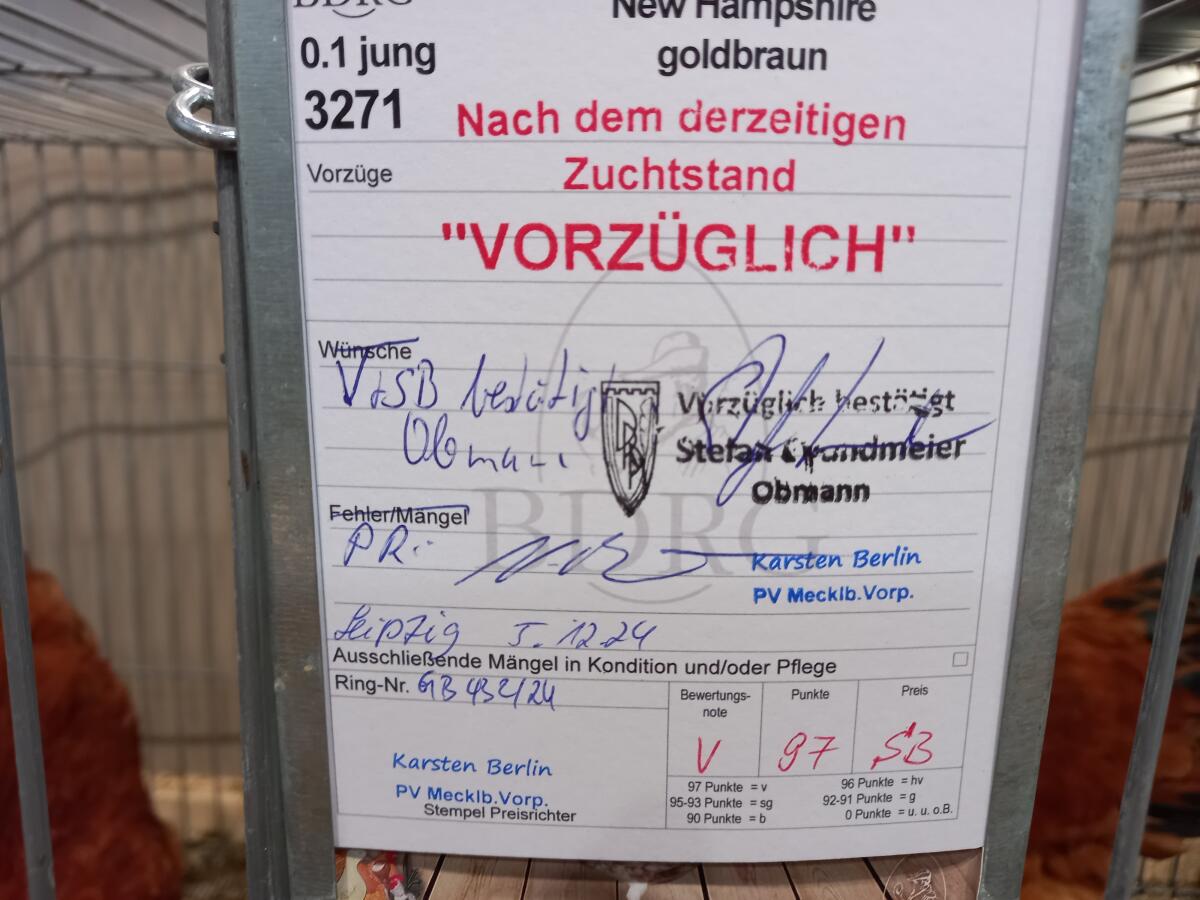 BDRG
New Hampshire
0.1 jung
goldbraun
3271
Nach dem derzeitigen
Vorzüge
Zuchtstand
"VORZÜGLICH"
Wünsche
V+SB bestätigt
Obmann
Vorzüglich bestätigt
Stefan Grundmeier
Obmann
BDRG
Fehler/Mängel
PR:
Karsten Berlin
PV Mecklb.Vorp.
Leipzig 5.12.24
Ausschließende Mängel in Kondition und/oder Pflege
Ring-Nr. GB 432/24
Bewertungs-
note
Punkte
Preis
V
97
SB
Karsten Berlin
PV Mecklb.Vorp.
Stempel Preisrichter
97 Punkte = v
96 Punkte = hv
95-93 Punkte = sg
92-91 Punkte = g
90 Punkte = b
0 Punkte = u. u. o.B.